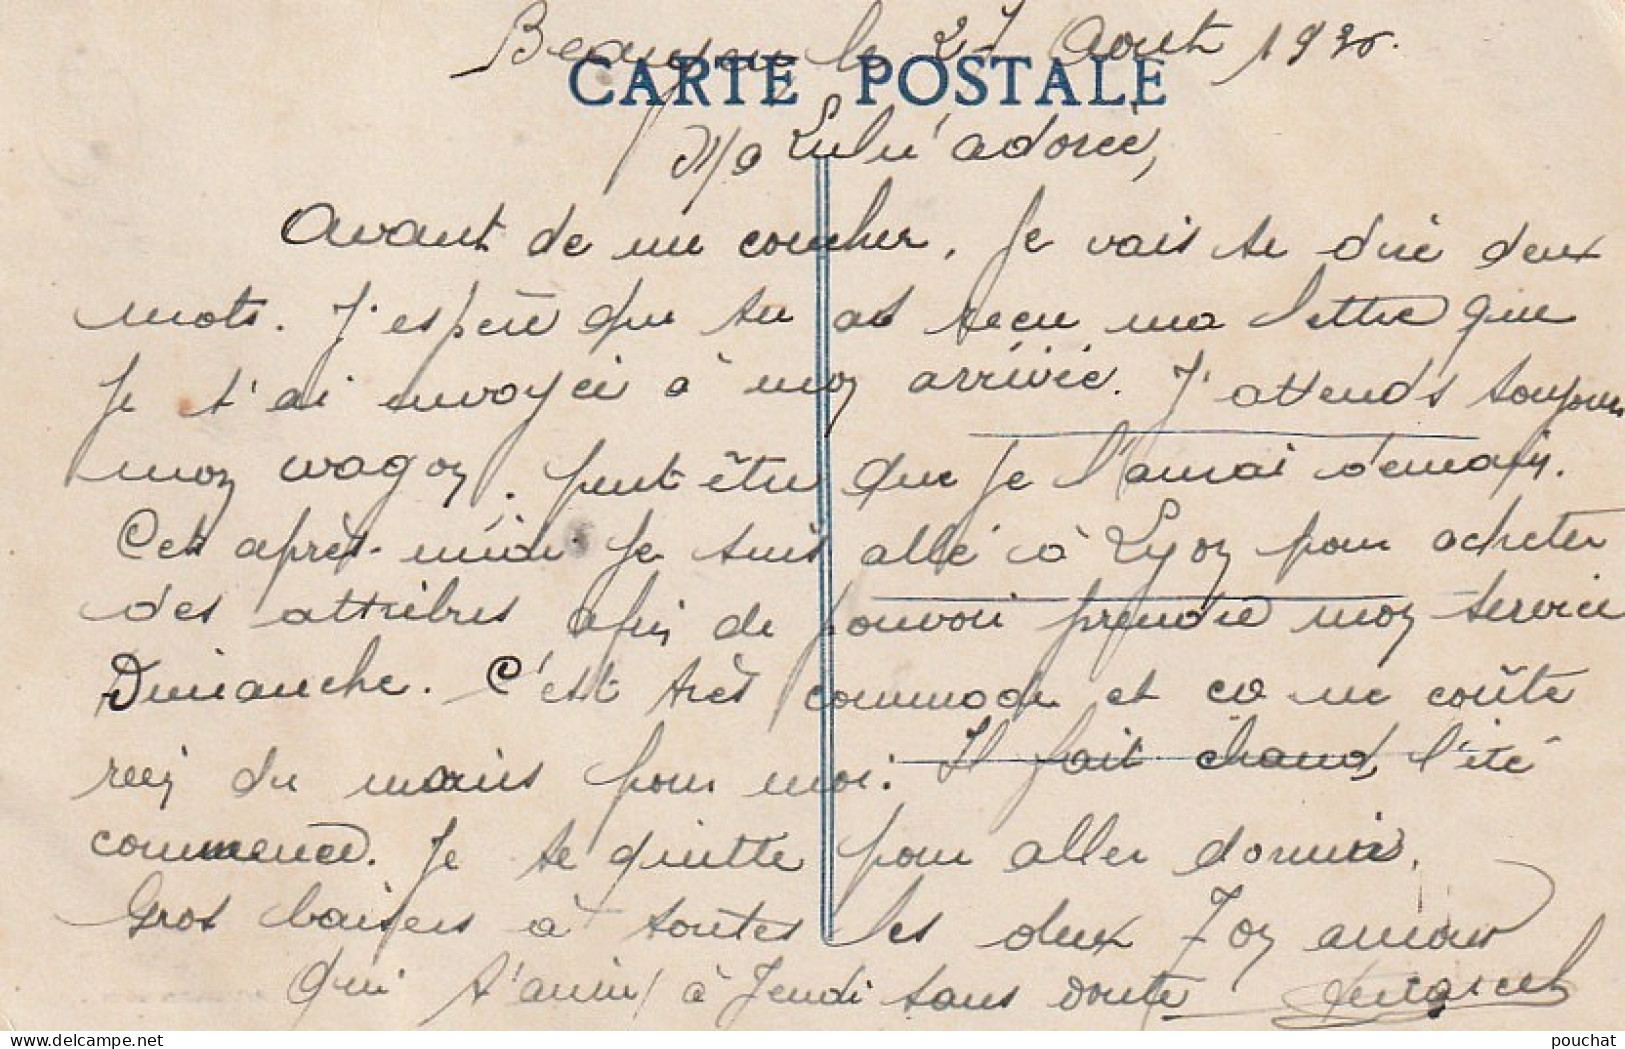 Beaujeu le 27 Aout 1920.
CARTE POSTALE
Ma Lulu adorée,
Avant de me coucher, je vais te dire deux
mots. J'espère que tu as reçu ma lettre que
je t'ai envoyée à mon arrivée. J'attends toujours
mon wagon, peut être que je l'aurai demain.
Cet après-midi je suis allé à Lyon pour acheter
des attribus afin de pouvoir prendre mon service
Dimanche. C'est très commode et ca ne coûte
rien du moins pour moi. Il fait chaud, l'été
commence. Je te quitte pour aller dormir.
Gros baisers à toutes les deux Ton amour
qui t'aime, à Jeudi sans doute
pouchat